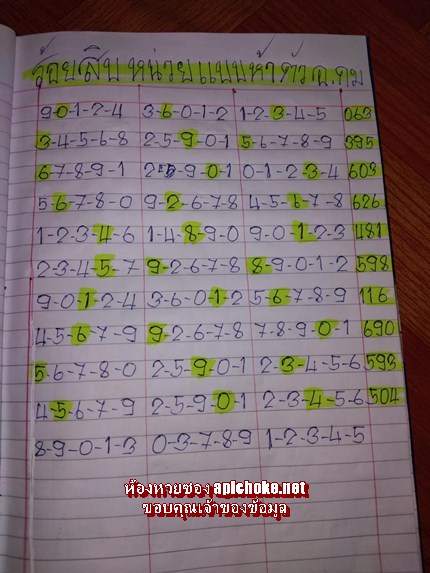 ร้อยสิบ หน่วยแบบห้าตัว อ.ดม
9-0-1-2-4 3-6-0-1-2 1-2-3-4-5 063
3-4-5-6-8 2-5-9-0-1 5-6-7-8-9 395
6-7-8-9-1 2-5-9-0-1 0-1-2-3-4 603
5-6-7-8-0 9-2-6-7-8 4-5-6-7-8 626
1-2-3-4-6 1-4-8-9-0 9-0-1-2-3 481
2-3-4-5-7 9-2-6-7-8 8-9-0-1-2 598
9-0-1-2-4 3-6-0-1-2 5-6-7-8-9 116
4-5-6-7-9 9-2-6-7-8 7-8-9-0-1 690
5-6-7-8-0 2-5-9-0-1 2-3-4-5-6 593
4-5-6-7-9 2-5-9-0-1 2-3-4-5-6 504
8-9-0-1-3 0-3-7-8-9 1-2-3-4-5
ห้องหวยซอง apichoke.net
ขอบคุณเจ้าของข้อมูล